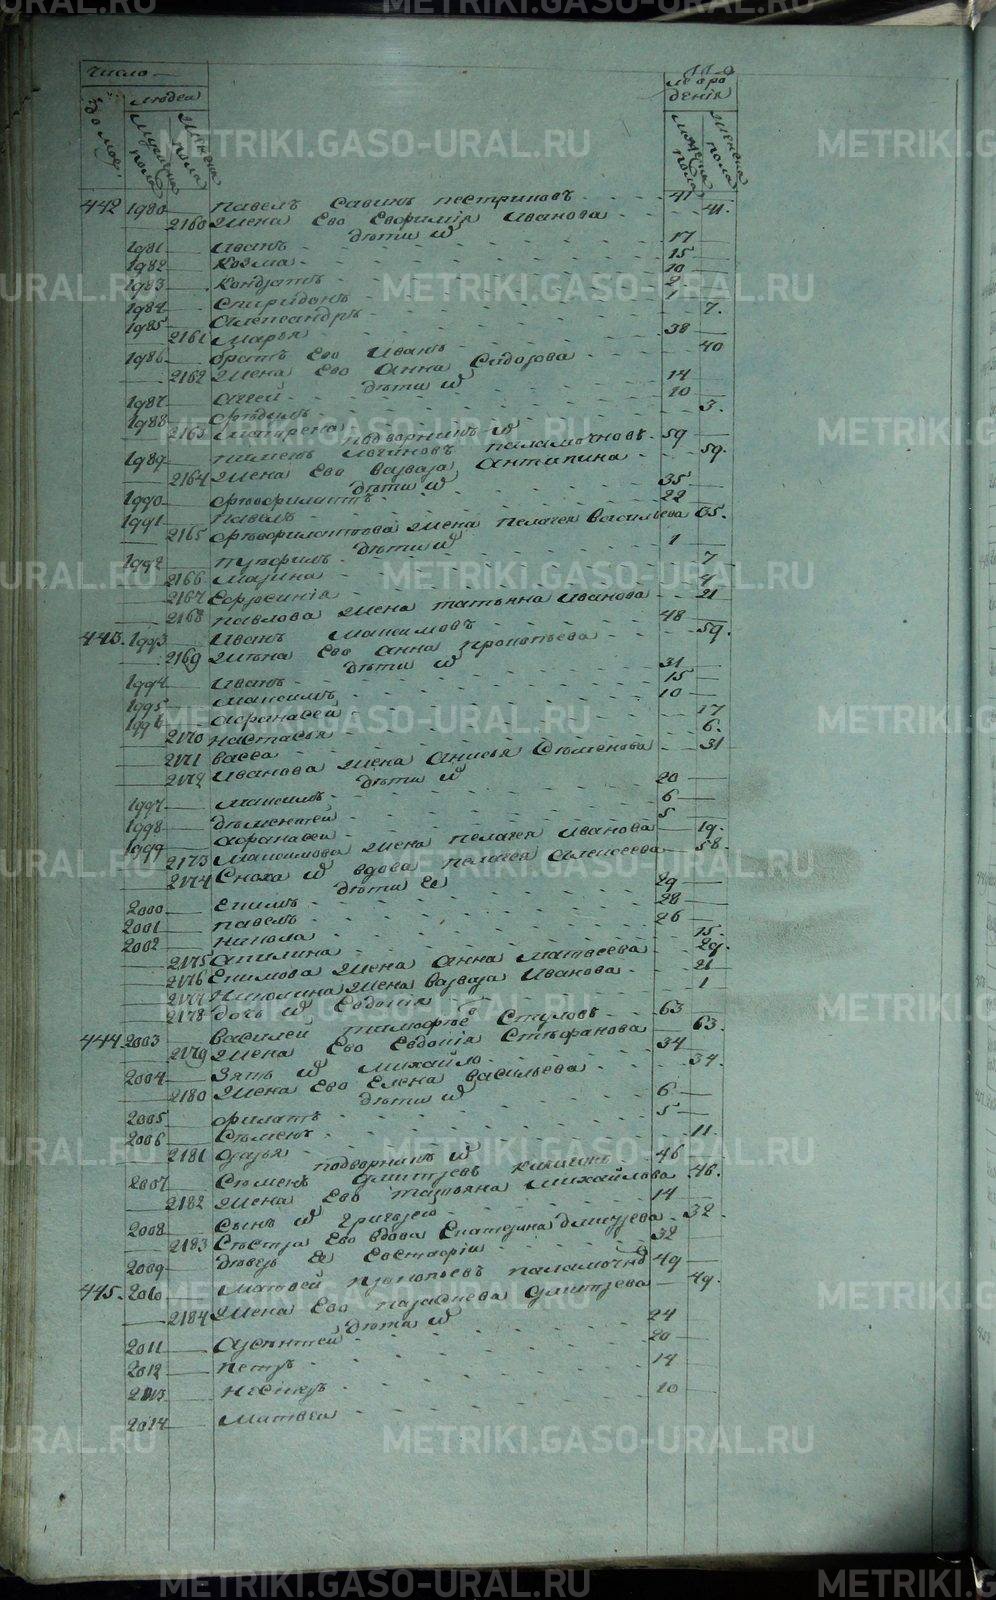 Число
людей
домов
мужеска пола
женска пола
110
лета рождения
мужеска пола
женска пола
442 1980 Павелъ Савинъ Пестриковъ 41
2160 Жена Его Евфимія Иванова 41.
дети их
1981 Иванъ 17
1982 Козма 15
1983 Кондратъ 10
1984 Спиридонъ 2
1985 Александръ 1
2161 Марья 7.
1986 братъ Его Иванъ 38
2162 Жена Его Анна Сидорова 40
дети их
1987 Агей 14
1988 Артемъ 10
2163 3.
подворникъ их
1989 Пименъ Логиновъ Паламочновъ 59
2164 Жена Его Варвара Антипина 59.
дети их
1990 35
1991 Павелъ 22
2165 жена Пелагея Васильева 35.
дети их
1992 1
2166 Марина 7
2167 Ефросинія 4
2168 Павлова Жена Татьяна Иванова 21
443. 1993 Иванъ Максимовъ 48
2169 Жена Его Анна Прокопьева 59.
дети их
1994 Иванъ 31
1995 Максимъ 15
1996 Афанасей 10
2170 Настасья 17
2171 Васса 6.
2172 Иванова Жена Анисья Сюменова 31
дети их
1997 Максимъ 20
1998 Дементей 6
1999 Афанасей 5
2173 Максимова Жена Пелагея Иванова 19.
2174 Сноха их вдова Пелагея Алексеева 58.
дети Ее
2000 Екимъ 29
2001 Павелъ 28
2002 Никола 26
2175 Акилина 15.
2176 Екимова Жена Анна Матвеева 29.
2177 Николина Жена Варвара Иванова 21
2178 дочь их Евдокія 1
444 2003 Василей Тимофеевъ Стуловъ 63
2179 Жена Его Евдокія Стефанова 63.
2004 Зять их Михайло 34
2180 Жена Его Елена Васильева 34.
дети их
2005 Филатъ 6
2006 Семенъ 5
2181 Дарья 11.
подворникъ их
2007 Сюменъ Дмитреевъ 46
2182 Жена Его Татьяна Михайлова 46.
2008 Сынъ их Григорей 14
2183 Сестра Его вдова Екатерина Дмитрева 32.
2009 Деверь Ее Евстафій 32
445. 2010 Матвей Прокопьевъ Паламочновъ 49
2184 Жена Его Параскева Дмитрева 49.
дети их
2011 24
2012 Петръ 20
2013 14
2014 Матвей 10
METRIKI.GASO-URAL.RU